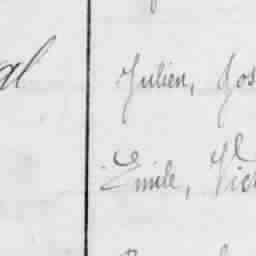 al
Julien, Jos
Emile, Vic